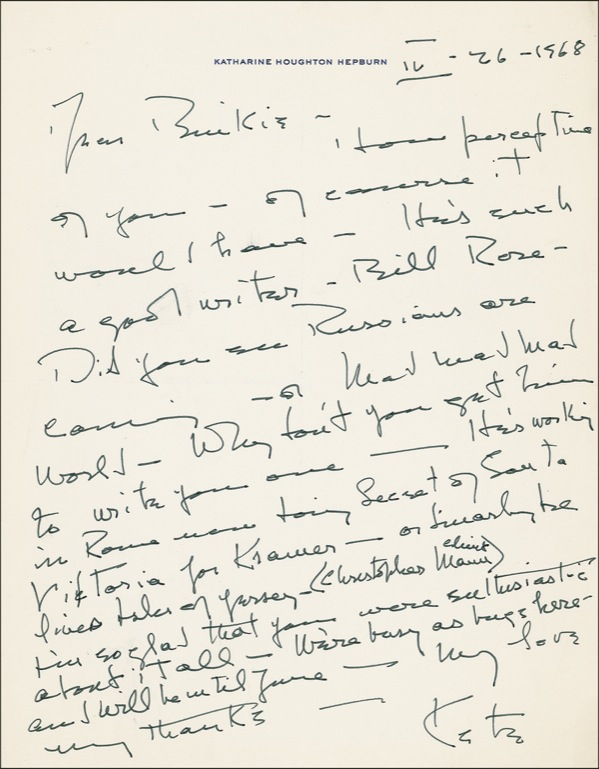 KATHARINE HOUGHTON HEPBURN
IV - 26 - 1968
Dear Binkie -
How perceptive
of you - of course it
would have - He's such
a good writer - Bill Rose -
Did you see Russians are
coming - or Mad mad mad
World - Why don't you get him
to write you one - He's working
in Rome now doing Secret of Santa
Viktoria for Kramer -
lives
(Christopher Mann client)
I'm so glad that you were enthusiastic
about it all - We're busy as bugs here -
and will be until June - My love
my thanks - Kate